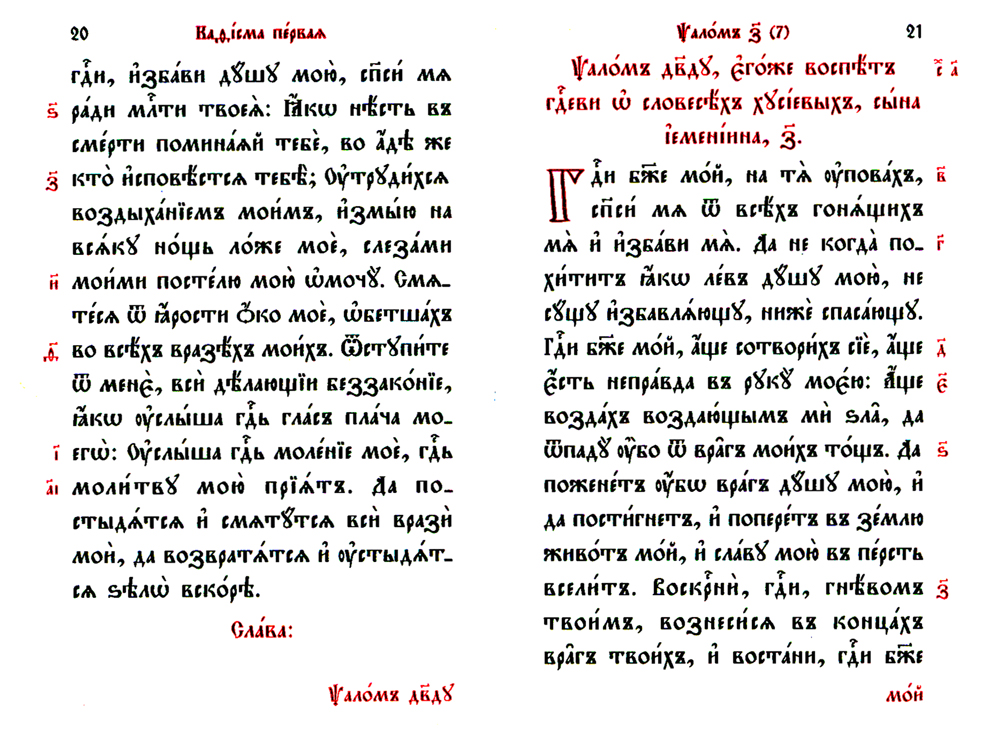 20
Каѳі́сма пе́рваѧ
гдⷭ҇и, и҆зба́ви дꙋ́шꙋ мою̀, сп҃си́ мѧ
ѕ҃
ра́ди млⷭ҇ти твоеѧ̀: Ꙗ҆́кѡ нѣ́сть въ
сме́рти помина́ѧй тебѐ, во а҆́дѣ же
з҃
кто̀ и҆сповѣ́стсѧ тебѣ̀; Оу҆труди́хсѧ
воздыха́нїемъ мои́мъ, и҆змы́ю на
всѧ́кꙋ но́щь ло́же моѐ, слеза́ми
и҃
мои́ми посте́лю мою̀ ѡ҆мочꙋ̀. Смѧ-
те́сѧ ѿ ꙗ҆́рости ѻ҆́ко моѐ, ѡ҆бетша́хъ
ѳ҃
во всѣ́хъ вразѣ́хъ мои́хъ. Ѿстꙋпи́те
ѿ менє̀, всѝ дѣ́лающїи беззако́нїе,
ꙗ҆́кѡ оу҆слы́ша гдⷭ҇ь гла́съ пла́ча мо-
і҃
егѡ̀: Оу҆слы́ша гдⷭ҇ь моле́нїе моѐ, гдⷭ҇ь
а҃і
моли́твꙋ мою̀ прїѧ́тъ. Да по-
стыдѧ́тсѧ и҆ смѧтꙋ́тсѧ всѝ вразѝ
моѝ, да возвратѧ́тсѧ и҆ оу҆стыдѧ́т-
сѧ ѕѣлѡ̀ вско́рѣ.
Сла́ва:
Ѱало́мъ дв҃дꙋ
Ѱало́мъ з҃ (7)
21
Ѱало́мъ дв҃дꙋ, є҆го́же воспѣ́тъ
гдⷭ҇еви ѡ҆ словесѣ́хъ хꙋсі́евыхъ, сы́на
і҆емені́ина, з҃.
Гдⷭ҇и бж҃е мо́й, на тѧ̀ оу҆пова́хъ,
в҃
сп҃си́ мѧ ѿ всѣ́хъ гонѧ́щихъ
мѧ̀ и҆ и҆зба́ви мѧ̀. Да не когда̀ по-
г҃
хи́титъ ꙗ҆́кѡ ле́въ дꙋ́шꙋ мою̀, не
сꙋ́щꙋ и҆збавлѧ́ющꙋ, нижѐ спаса́ющꙋ.
Гдⷭ҇и бж҃е мо́й, а҆́ще сотвори́хъ сїѐ, а҆́ще
д҃
є҆́сть непра́вда въ рꙋкꙋ̀ моє́ю: А҆́ще
є҃
возда́хъ воздаю́щымъ мѝ ѕла̑, да
ѿпадꙋ̀ оу҆̀бо ѿ вра̑гъ мои́хъ то́щъ. Да
ѕ҃
пожене́тъ оу҆́бѡ вра́гъ дꙋ́шꙋ мою̀, и҆
да пости́гнетъ, и҆ попере́тъ въ зе́млю
живо́тъ мо́й, и҆ сла́вꙋ мою̀ въ пе́рсть
всели́тъ. Воскрⷭ҇нѝ, гдⷭ҇и, гнѣ́вомъ
з҃
твои́мъ, вознеси́сѧ въ конца́хъ
вра̑гъ твои́хъ, и҆ воста́ни, гдⷭ҇и бж҃е
мо́й